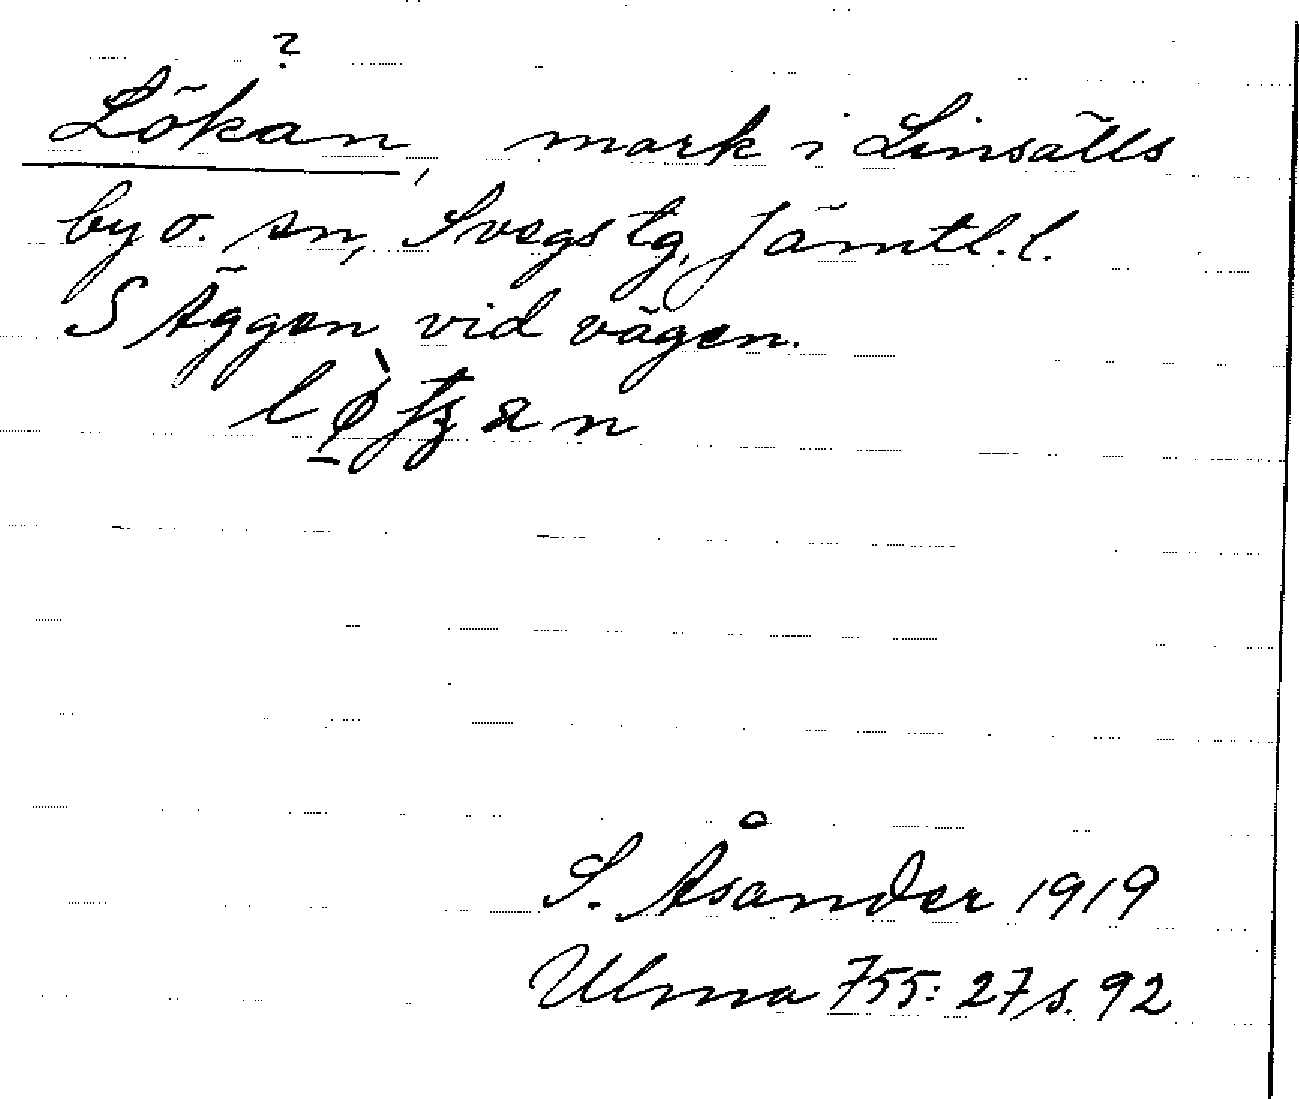 ?
Lökan, mark i Linsälls
by o. sn, Svegs tg, Jämtl. l.
S Äggen vid vägen.
S. Åsander 1919
Ulma 755: 27 s. 92